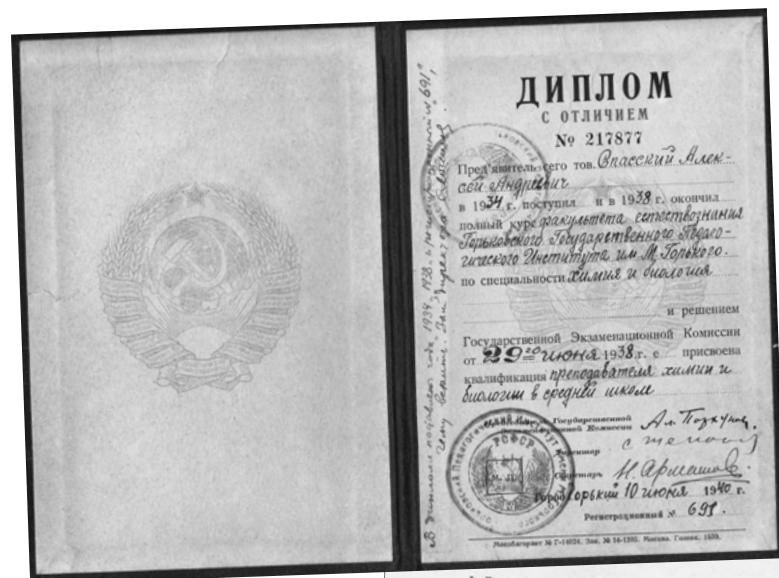 ДИПЛОМ
С ОТЛИЧИЕМ
№ 217877
Пред'явитель сего тов. Спасский Алек-
сей Андреевич
в 1934 г. поступил и в 1938 г. окончил
полный курс факультета естествознания
Горьковского Государственного Педаго-
гического Института им М. Горького.
по специальности химия и биология
и решением
Государственной Экзаменационной Комиссии
от 29го июня 1938 г. е присвоена
квалификация преподавателя химии и
биологии в средней школе
Государственной
Экзаменационной Комиссии
Директор
Секретарь
РСФСР
М. П.
Город Горький 10 июня 1940 г.
Регистрационный № 691.
Мособлгорлит № Г-14024. Зак. № 14-1205. Москва. Гознак. 1939.
В дипломе подправлен года 1934, 1938 и регистрационный № 691,
чему верить. Зам директора